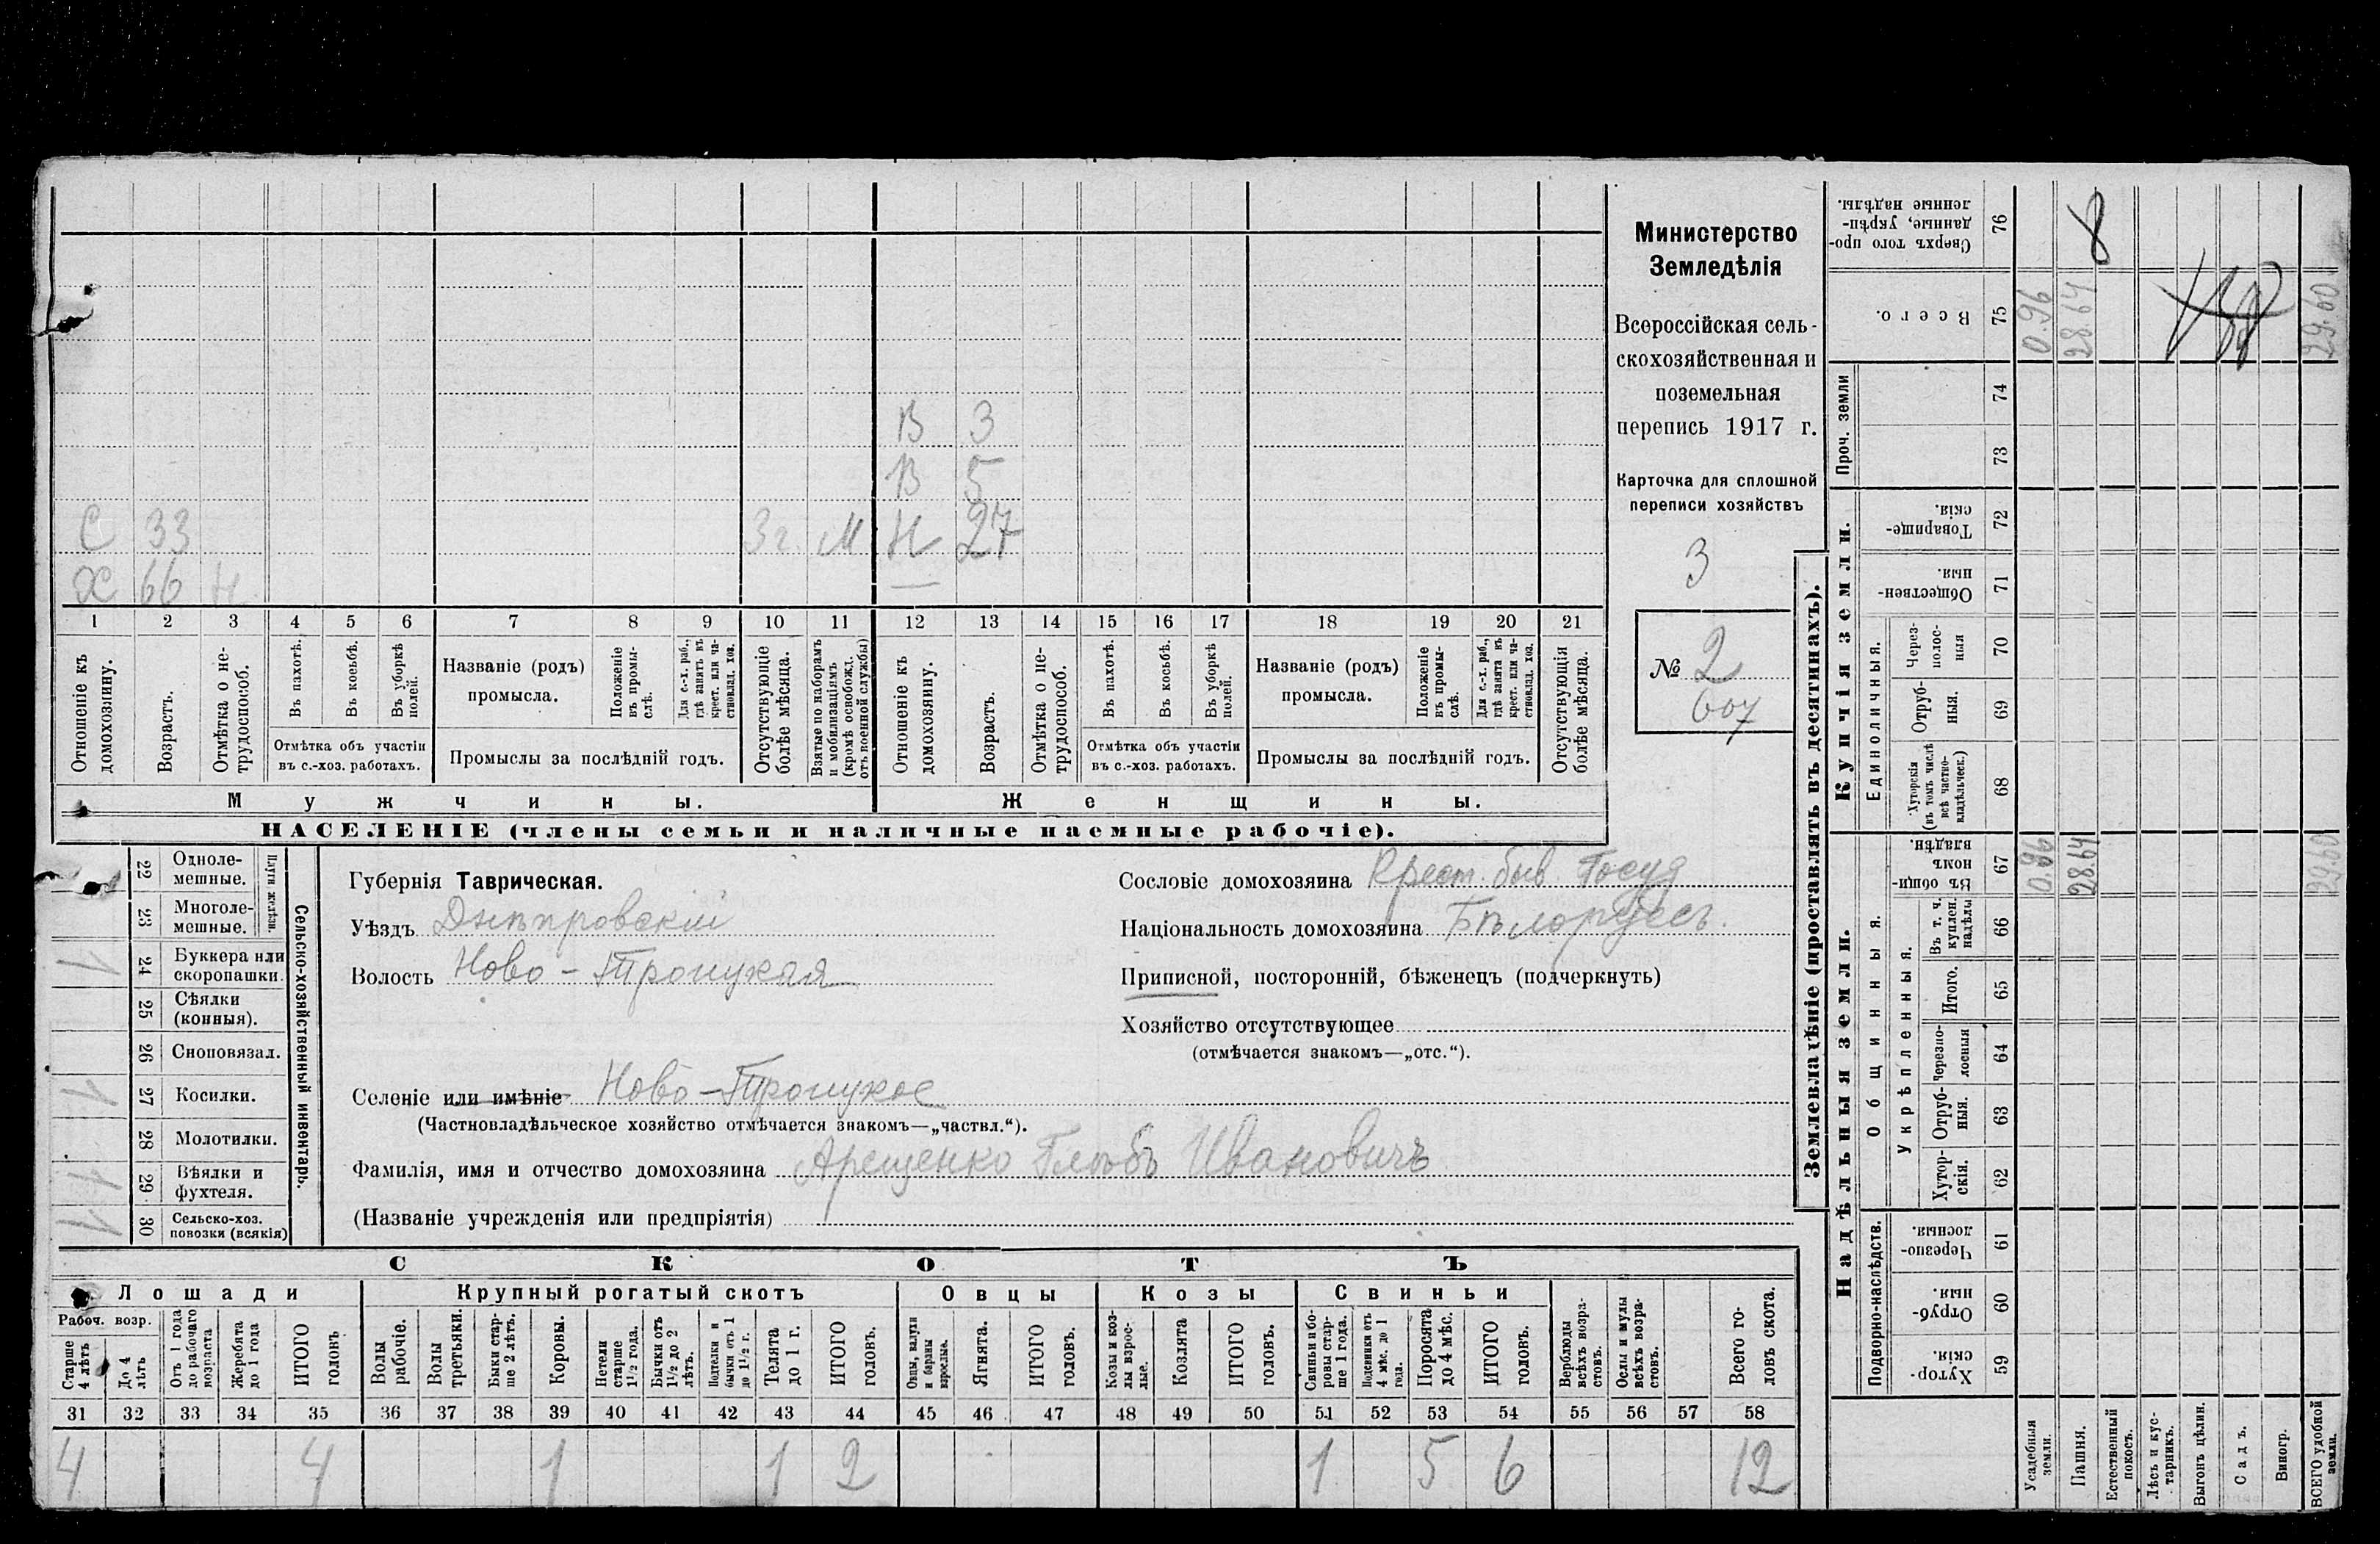 Министерство
Земледѣлія
Всероссійская сель-
скохозяйственная и
поземельная
перепись 1917 г.
Карточка для сплошной
переписи хозяйствъ
3
№ 2
607
В 3
В 5
С 33 3 г. М Н 27
Х 66 Н —
1 2 3 4 5 6 7 8 9 10 11 12 13 14 15 16 17 18 19 20 21
Отношеніе къ домохозяину.
Возрастъ.
Отмѣтка о не-трудоспособ.
Въ пахотѣ.
Въ косьбѣ.
Въ уборкѣ полей.
Отмѣтка объ участіи
въ с.-хоз. работахъ.
Названіе (родъ)
промысла.
Положеніе въ промы-слѣ.
Для с.-х. раб., гдѣ занятъ въ крест. или ча-стновлад. хоз.
Промыслы за послѣдній годъ.
Отсутствующіе болѣе мѣсяца.
Взятые по наборамъ и мобилизаціямъ (кромѣ освобожд. отъ военной службы)
Отношеніе къ домохозяину.
Возрастъ.
Отмѣтка о не-трудоспособ.
Въ пахотѣ.
Въ косьбѣ.
Въ уборкѣ полей.
Отмѣтка объ участіи
въ с.-хоз. работахъ.
Названіе (родъ)
промысла.
Положеніе въ промы-слѣ.
Для с.-х. раб., гдѣ занята въ крест. или ча-стновлад. хоз.
Промыслы за послѣдній годъ.
Отсутствующія болѣе мѣсяца.
Мужчины.
Женщины.
НАСЕЛЕНІЕ (члены семьи и наличные наемные рабочіе).
Сельско-хозяйственный инвентарь.
Плуги желѣзн.
22 Одноле-мешные.
23 Многоле-мешные.
1 24 Буккера или скоропашки.
25 Сѣялки (конныя).
26 Сноповязал.
1 27 Косилки.
28 Молотилки.
1 29 Вѣялки и фухтеля.
1 30 Сельско-хоз. повозки (всякія)
Губернія Таврическая.
Уѣздъ Днѣпровскій
Волость Ново-Троицкая
Селеніе или имѣніе Ново-Троицкое
(Частновладѣльческое хозяйство отмѣчается знакомъ—„частвл.“).
Фамилія, имя и отчество домохозяина Арещенко Глѣбъ Ивановичъ
(Названіе учрежденія или предпріятія)
Сословіе домохозяина Крест. быв. Госуд
Національность домохозяина Бѣлоруссъ.
Приписной, посторонній, бѣженецъ (подчеркнуть)
Хозяйство отсутствующее
(отмѣчается знакомъ—„отс.“).
СКОТЪ
Лошади
Крупный рогатый скотъ
Овцы
Козы
Свиньи
Рабоч. возр.
Старше 4 лѣтъ
До 4 лѣтъ
Отъ 1 года до рабочаго возраста
Жеребята до 1 года
ИТОГО головъ
Волы рабочіе.
Волы третьяки.
Быки стар-ше 2 лѣтъ.
Коровы.
Нетели старше 1½ года.
Бычки отъ 1½ до 2 лѣтъ.
Подтелки и бычки отъ 1 до 1½ г.
Телята до 1 г.
ИТОГО головъ.
Овцы, валухи и бараны взрослые.
Ягнята.
ИТОГО головъ.
Козы и коз-лы взрос-лые.
Козлята
ИТОГО головъ.
Свиньи и бо-ровы стар-ше 1 года.
Подсвинки отъ 4 мѣс. до 1 года.
Поросята до 4 мѣс.
ИТОГО головъ.
Верблюды всѣхъ возра-стовъ.
Ослы и мулы всѣхъ возра-стовъ.
Всего го-ловъ скота.
31 32 33 34 35 36 37 38 39 40 41 42 43 44 45 46 47 48 49 50 51 52 53 54 55 56 57 58
4 4 1 1 2 1 5 6 12
Землевладѣніе (проставлять въ десятинахъ).
Надѣльныя земли.
Купчія земли.
Проч. земли
Подворно-наслѣдств.
Общинныя.
Укрѣпленныя.
Единоличныя.
Сверхъ того про-данные, укрѣп-ленные надѣлы. 76 8
Всего. 75 0.96 28.64 29.60
74
73
Товарище-скія. 72
Обществен-ныя. 71
Через-полос-ныя 70
Отруб-ныя. 69
Хуторскія (въ томъ числѣ всѣ частно-владѣльческ.) 68
Въ общин-номъ владѣн. 67 0.96 28.64 29.60
Въ т. ч. куплен. надѣлы 66
Итого. 65
Черезпо-лосныя 64
Отруб-ныя. 63
Хутор-скія. 62
Черезпо-лосныя. 61
Отруб-ныя. 60
Хутор-скія. 59
Усадебныя земли.
Пашня.
Естественный покосъ.
Лѣсъ и кус-тарникъ.
Выгонъ цѣлин.
Садъ.
Виногр.
ВСЕГО удобной земли.